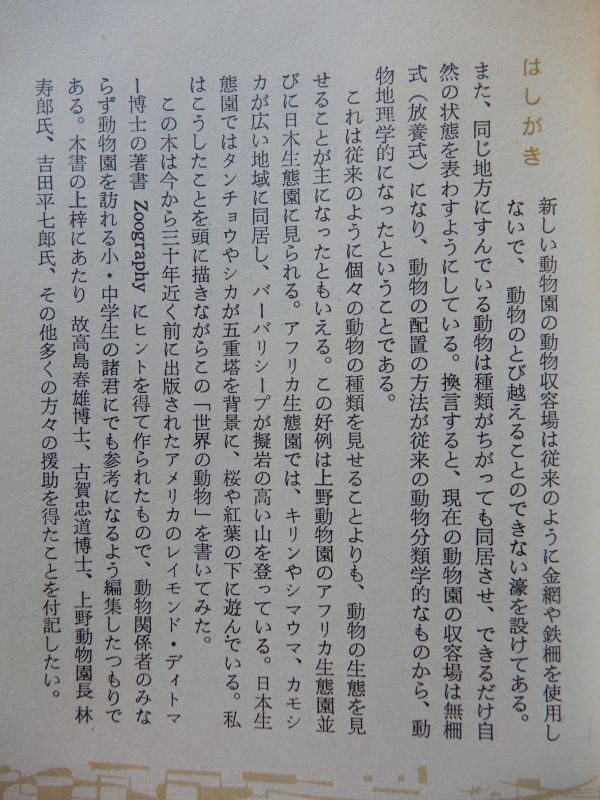 はしがき
新しい動物園の動物収容場は従来のように金網や鉄柵を使用し
ないで、動物のとび越えることのできない濠を設けてある。
また、同じ地方にすんでいる動物は種類がちがっても同居させ、できるだけ自
然の状態を表わすようにしている。換言すると、現在の動物園の収容場は無柵
式（放養式）になり、動物の配置の方法が従来の動物分類学的なものから、動
物地理学的になったということである。
これは従来のように個々の動物の種類を見せることよりも、動物の生態を見
せることが主になったともいえる。この好例は上野動物園のアフリカ生態園並
びに日本生態園に見られる。アフリカ生態園では、キリンやシマウマ、カモシ
カが広い地域に同居し、バーバリシープが擬岩の高い山を登っている。日本生
態園ではタンチョウやシカが五重塔を背景に、桜や紅葉の下に遊んでいる。私
はこうしたことを頭に描きながらこの「世界の動物」を書いてみた。
この本は今から三十年近く前に出版されたアメリカのレイモンド・ディトマ
ー博士の著書 Zoography にヒントを得て作られたもので、動物関係者のみな
らず動物園を訪れる小・中学生の諸君にでも参考になるよう編集したつもりで
ある。本書の上梓にあたり 故高島春雄博士、古賀忠道博士、上野動物園長 林
寿郎氏、吉田平七郎氏、その他多くの方々の援助を得たことを付記したい。